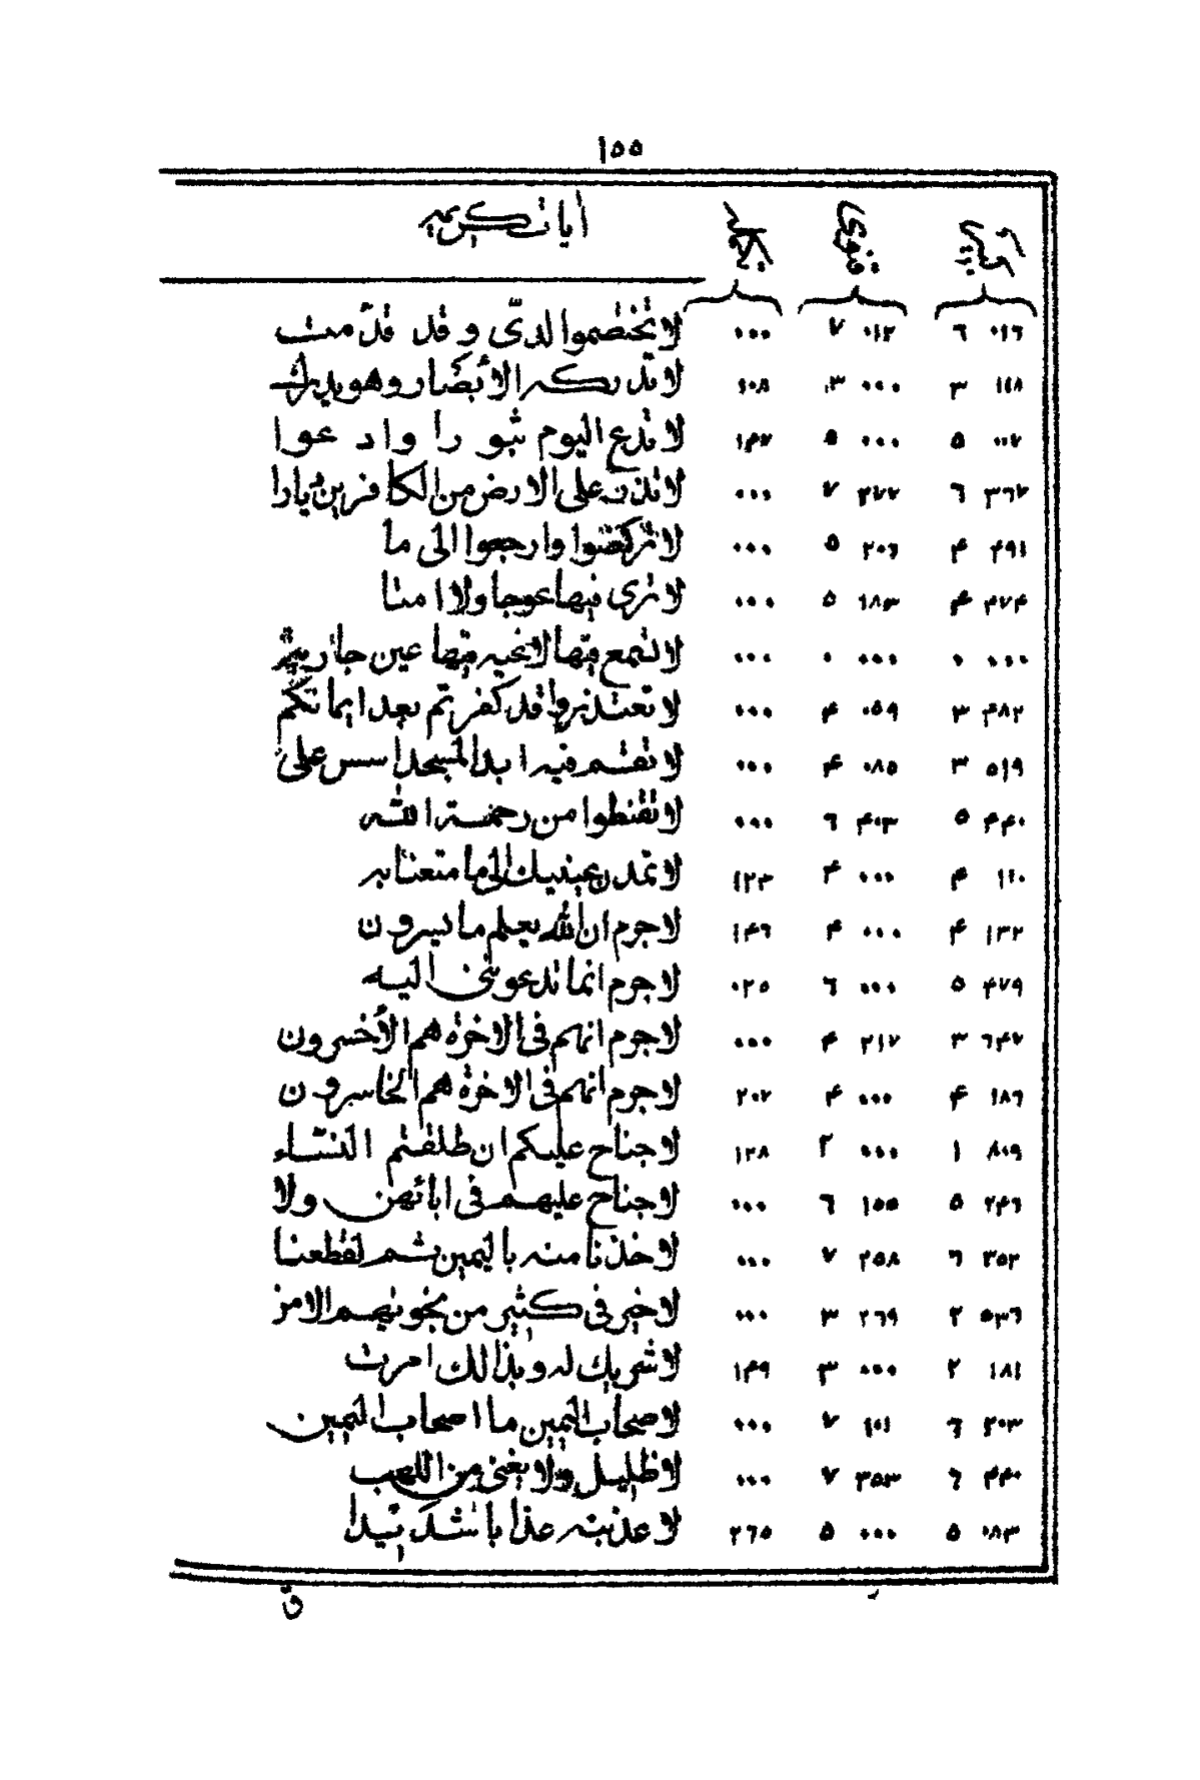 ١٥٥
آيات كريمه
٠١٦ ٦ ٠١٢ ٧ ٠٠٠ لا تختصموا لدىّ وقد قدّمت
١٤٨ ٣ ٠٠٠ ٣ ٤٠٨ لا تدركه الأبصار وهو يدرك
٠٠٧ ٥ ٠٠٠ ٥ ١۴٧ لا تدع اليوم ثبورا وادعوا
٣٦٧ ٦ ٢٧٧ ٧ ٠٠٠ لا تذر على الارض من الكافرين ديارا
۴٩١ ۴ ٢٠٦ ٥ ٠٠٠ لا تركضوا وارجعوا الى ما
۴٧۴ ۴ ١٨٣ ٥ ٠٠٠ لا ترى فيها عوجا ولا امتا
٠٠٠ ٠ ٠٠٠ ٠ ٠٠٠ لا تسمع فيها لاغيه فيها عين جاريه
۴٨٢ ٣ ٠٥٩ ۴ ٠٠٠ لا تعتذروا قد كفرتم بعد ايمانكم
٥١٩ ٣ ٠٨٥ ۴ ٠٠٠ لا تقم فيه ابدا لمسجد اسس على
۴۴٠ ٥ ۴٠٣ ٦ ٠٠٠ لا تقنطوا من رحمة الله
١٤٠ ۴ ٠٠٠ ۴ ١٢٣ لا تمدن عينيك الى ما متعنا به
١٣٢ ۴ ٠٠٠ ۴ ١۴٦ لا جرم ان الله يعلم ما يسرون
۴٧٩ ٥ ٠٠٠ ٦ ٠٢٥ لا جرم انما تدعوننى اليه
٦۴٧ ٣ ٢١٧ ۴ ٠٠٠ لا جرم انهم فى الاخرة هم الأخسرون
١٨٦ ۴ ٠٠٠ ۴ ٢٠٧ لا جرم انهم فى الاخرة هم الخاسرون
٨٠٩ ١ ٠٠٠ ٢ ١٢٨ لا جناح عليكم ان طلقتم النسّاء
٢۴٦ ٥ ١٥٥ ٦ ٠٠٠ لا جناح عليهم فى ابائهن ولا
٣٥٢ ٦ ٢٥٨ ٧ ٠٠٠ لاخذنا منه باليمين ثم لقطعنا
٥٣٦ ٢ ٢٦٩ ٣ ٠٠٠ لا خير فى كثير من نجويهم الا من
١٨١ ٢ ٠٠٠ ٣ ١۴٩ لا شريك له وبذالك امرت
٢٠٣ ٦ ١٠١ ٧ ٠٠٠ لاصحاب اليمين ما اصحاب اليمين
۴۴٠ ٦ ٣٥٣ ٧ ٠٠٠ لا ظليل ولا يغنى من اللهب
٠٨٣ ٥ ٠٠٠ ٥ ٢٦٥ لاعذبنه عذابا شديدا
ق